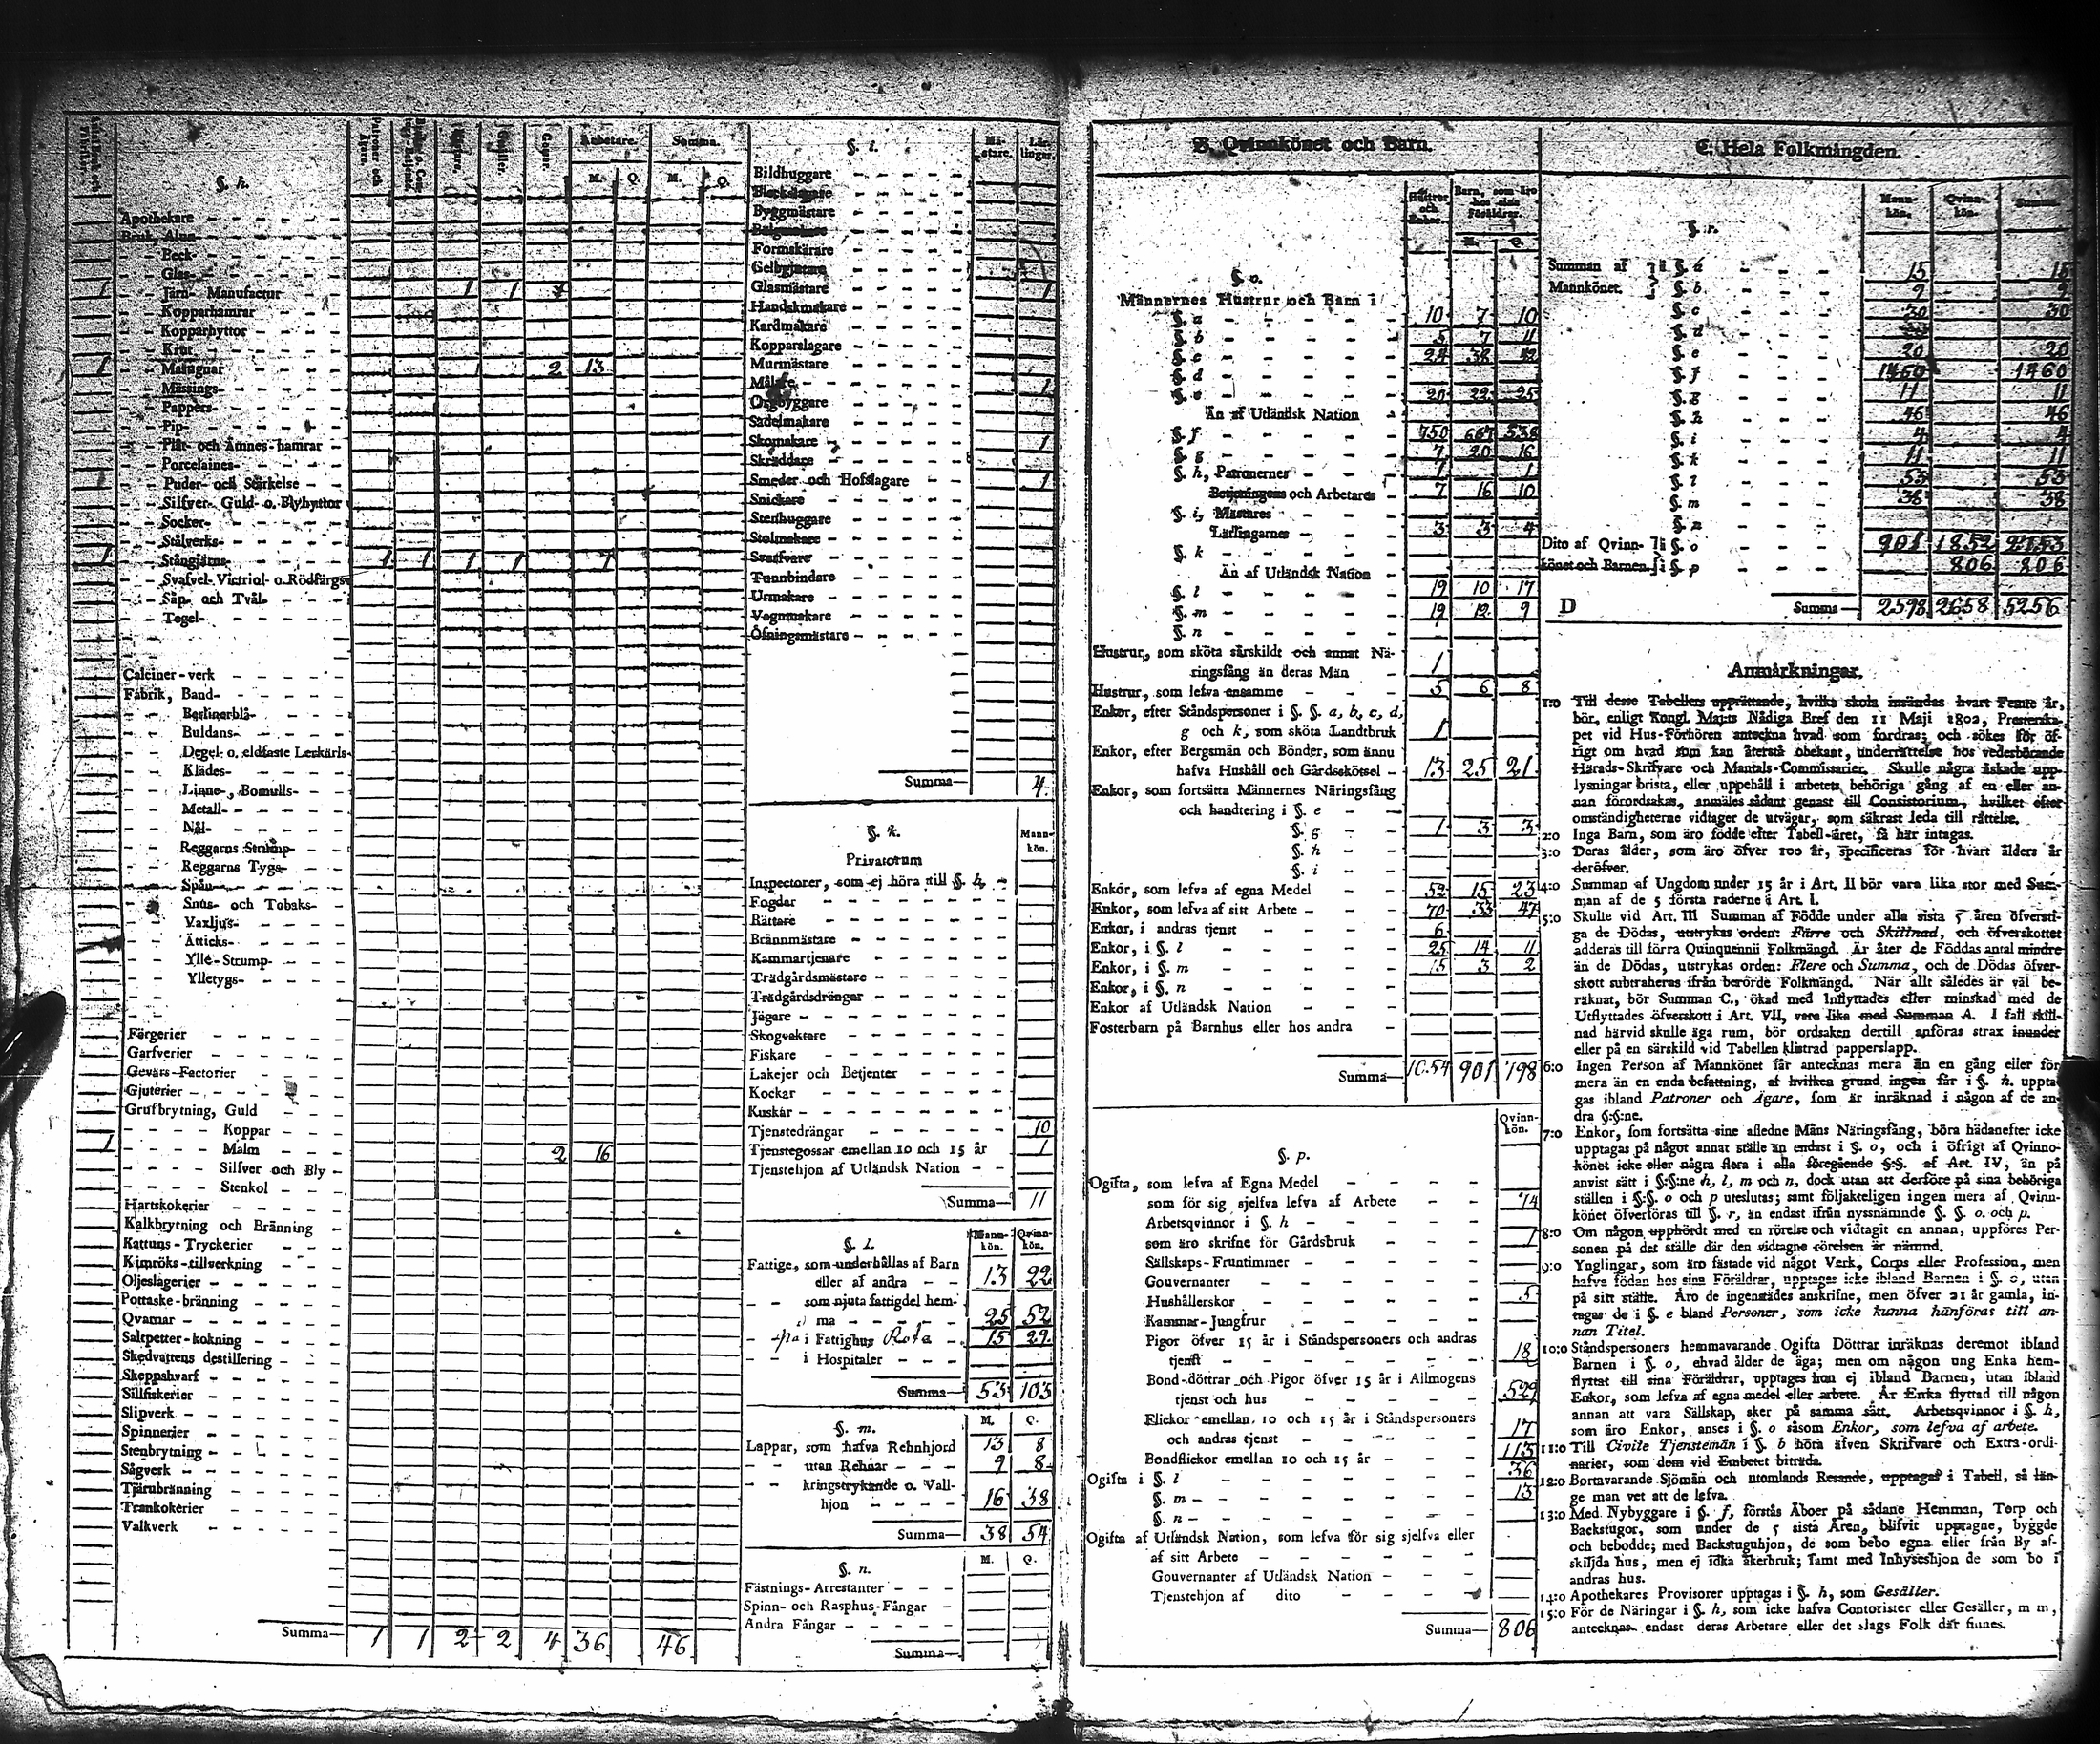 §. h.
Arbetare.
Summa.
M.
Q.
M.
Q.
Apothekare
Bruk, Alun-
Beck-
Glas-
1 Järn- Manufactur 1 1
Kopparhamrar
Kopparhyttor
Krut-
1 Masugnar 1 2 13
Mässings-
Pappers-
Pip-
Plåt- och Ämnes-hamrar
Porcelaines-
Puder- och Stärkelse
Silfver- Guld- o. Blyhyttor
Socker-
Stålverks-
1 Stångjärns- 1 1 1 1 7
Svafvel- Victriol- o. Rödfärgs-
Såp- och Tvål-
Tegel-
Calciner-verk
Fabrik, Band-
Berlinerblå-
Buldans-
Degel- o. eldfaste Lerkärls-
Klädes-
Linne-, Bomulls-
Metall-
Nål-
Reggarns Strump-
Reggarns Tygs-
Spån-
Snus- och Tobaks-
Vaxljus-
Ätticks-
Ylle-Strump-
Ylletygs-
Färgerier
Garfverier
Gevärs-Factorier
Gjuterier
Grufbrytning, Guld
Koppar
1 Malm 2 16
Silfver och Bly
Stenkol
Hartskokerier
Kalkbrytning och Bränning
Kattuns-Tryckerier
Kimröks-tillverkning
Oljeslagerier
Pottaske-bränning
Qvarnar
Saltpetter-kokning
Skedvattens destillering
Skeppshvarf
Sillfiskerier
Slipverk
Spinnerier
Stenbrytning
Sågverk
Tjärubränning
Trankokerier
Valkverk
Summa— 1 1 2 2 4 36 46
§. i.
Mä-stare.
Lär-lingar.
Bildhuggare
Bleckslagare
Byggmästare
Bälgmakare
Formskärare
Gelbgjutare
Glasmästare 1
Handskmakare
Kardmakare
Kopparslagare
Murmästare
Målare 1
Orgbyggare
Sadelmakare
Skomakare 1
Skräddare
Smeder och Hofslagare 1
Snickare
Stenhuggare
Stolmakare
Svarfvare
Tunnbindare
Urmakare
Vagnmakare
Öfningsmästare
Summa— 4.
§. k.
Mann-kön.
Privatorum
Inspectorer, som ej höra till §. h,
Fogdar
Rättare
Brännmästare
Kammartjenare
Trädgårdsmästare
Trädgårdsdrängar
Jägare
Skogvaktare
Fiskare
Lakejer och Betjenter
Kockar
Kuskar
Tjenstedrängar 10
Tjenstegossar emellan 10 och 15 år 1
Tjenstehjon af Utländsk Nation
Summa— 11
§. l.
Mann-kön.
Qvinn-kön.
Fattige, som underhållas af Barn
eller af andra 13 22
som njuta fattigdel hem-
ma 25 52
på i Fattighus Rota 15 29
i Hospitaler
Summa— 53 103
§. m.
M. Q.
Lappar, som hafva Rehnhjord 13 8
utan Rehnar 9 8
kringstrykande o. Vall-
hjon 16 38
Summa— 38 54
§. n.
M. Q.
Fästnings-Arrestanter
Spinn- och Rasphus-Fångar
Andra Fångar
Summa—
B. Qvinnkönet och Barn.
Hustrur och Enkor.
Barn, som äro hos sina Föräldrar.
M. Q.
§. o.
Männernes Hustrur och Barn i
§. a 10 7 10
§. b 5 7 11
§. c 24 38 42
§. d
§. e 20 22 25
Än af Utländsk Nation
§. f 750 667 538
§. g 7 20 16
§. h, Patronernes 1 1
Betjeningens och Arbetares 7 16 10
§. i, Mästares
Lärlingarnes 3 3 4
§. k
Än af Utländsk Nation
§. l 19 10 17
§. m 19 12 9
§. n
Hustrur, som sköta särskildt och annat Nä-
ringsfång än deras Män 1
Hustrur, som lefva ensamme 5 6 8
Enkor, efter Ståndspersoner i §. §. a, b, c, d,
g och k, som sköta Landtbruk 1
Enkor, efter Bergsmän och Bönder, som ännu
hafva Hushåll och Gårdsskötsel 13 25 21
Enkor, som fortsätta Männernes Näringsfång
och handtering i §. e
§. g 1 3 3
§. h
§. i
Enkor, som lefva af egna Medel 52 15 23
Enkor, som lefva af sitt Arbete 70 33 47
Enkor, i andras tjenst 6
Enkor, i §. l 25 14 11
Enkor, i §. m 15 3 2
Enkor, i §. n
Enkor af Utländsk Nation
Fosterbarn på Barnhus eller hos andra
Summa— 1054 901 798
Qvinn-kön.
§. p.
Ogifta, som lefva af Egna Medel
som för sig sjelfva lefva af Arbete 74
Arbetsqvinnor i §. h
som äro skrifne för Gårdsbruk 1
Sällskaps-Fruntimmer
Gouvernanter
Hushållerskor 5
Kammar-Jungfrur
Pigor öfver 15 år i Ståndspersoners och andras
tjenst 18
Bond-döttrar och Pigor öfver 15 år i Allmogens
tjenst och hus 529
Flickor emellan 10 och 15 år i Ståndspersoners
och andras tjenst 17
Bondflickor emellan 10 och 15 år 113
Ogifta i §. l 36
§. m 13
§. n
Ogifta af Utländsk Nation, som lefva för sig sjelfva eller
af sitt Arbete
Gouvernanter af Utländsk Nation
Tjenstehjon af dito
Summa— 806
C. Hela Folkmängden.
Mann-kön.
Qvinn-kön.
Summa.
§. r.
Summan af i §. a 15 15
Mannkönet. §. b 9 9
§. c 30 30
§. d
§. e 20 20
§. f 1460 1460
§. g 11 11
§. h 46 46
§. i 4 4
§. k 11 11
§. l 53 53
§. m 38 38
§. n
Dito af Qvinn- i §. o 901 1852 2753
könet och Barnen. i §. p 806 806
D Summa— 2598 2658 5256
Anmärkningar.
1:0 Till desse Tabellers upprättande, hvilka skola insändas hvart Femte år,
bör, enligt Kongl. Maj:ts Nådiga Bref den 11 Maji 1802, Presterska-
pet vid Hus-Förhören anteckna hvad som fordras; och sökes för öf-
rigt om hvad som kan återstå obekant, underrättelse hos vederbörande
Härads-Skrifvare och Mantals-Commissarier. Skulle några äskade upp-
lysningar brista, eller uppehåll i arbetets behöriga gång af en eller an-
nan förordsakas, anmäles sådant genast till Consistorium, hvilket efter
omständigheterne vidtager de utvägar, som säkrast leda till rättelse.
2:0 Inga Barn, som äro födde efter Tabell-året, få här intagas.
3:0 Deras ålder, som äro öfver 100 år, specificeras för hvart ålders år
deröfver.
4:0 Summan af Ungdom under 15 år i Art. II bör vara lika stor med Sum-
man af de 5 första raderne i Art. I.
5:0 Skulle vid Art. III Summan af Födde under alla sista 5 åren öfversti-
ga de Dödas, utstrykas orden: Färre och Skillnad, och öfverskottet
adderas till förra Quinquennii Folkmängd. Är åter de Föddas antal mindre
än de Dödas, utstrykas orden: Flere och Summa, och de Dödas öfver-
skott subtraheras ifrån berörde Folkmängd. När allt således är väl be-
räknat, bör Summan C., ökad med Inflyttades eller minskad med de
Utflyttades öfverskott i Art. VII, vara lika med Summan A. I fall skill-
nad härvid skulle äga rum, bör ordsaken dertill anföras strax inunder
eller på en särskild vid Tabellen klistrad papperslapp.
6:0 Ingen Person af Mannkönet får antecknas mera än en gång eller för
mera än en enda befattning, af hvilken grund ingen får i §. h. uppta-
gas ibland Patroner och Ägare, som är inräknad i någon af de an-
dra §:§:ne.
7:0 Enkor, som fortsätta sine aflednе Måns Näringsfång, böra hädanefter icke
upptagas på något annat ställe än endast i §. o, och i öfrigt af Qvinno-
könet icke eller några flera i alla föregående §:§. af Art. IV, än på
anvist sätt i §:§:ne h, l, m och n, dock utan att derföre på sina behöriga
ställen i §:§. o och p uteslutas; samt följakteligen ingen mera af Qvinn-
könet öfverföras till §. r, än endast ifrån nyssnämnde §. §. o. och p.
8:0 Om någon upphördt med en rörelse och vidtagit en annan, uppföres Per-
sonen på det ställe där den vidtagne rörelsen är nämnd.
9:0 Ynglingar, som äro fästade vid något Verk, Corps eller Profession, men
hafva födan hos sina Föräldrar, upptages icke ibland Barnen i §. o, utan
på sitt ställe. Äro de ingenstädes anskrifne, men öfver 21 år gamla, in-
tagas de i §. e bland Personer, som icke kunna hänföras till an-
nan Titel.
10:0 Ståndspersoners hemmavarande Ogifta Döttrar inräknas deremot ibland
Barnen i §. o, ehvad ålder de äga; men om någon ung Enka hem-
flyttat till sina Föräldrar, upptages hon ej ibland Barnen, utan ibland
Enkor, som lefva af egna medel eller arbete. Är Enka flyttad till någon
annan att vara Sällskap, sker på samma sätt. Arbetsqvinnor i §. h,
som äro Enkor, anses i §. o såsom Enkor, som lefva af arbete.
11:0 Till Civile Tjenstemän i §. b höra äfven Skrifvare och Extra-ordi-
narier, som dem vid Embetet biträda.
12:0 Bortavarande Sjömän och utomlands Resande, upptagas i Tabell, så län-
ge man vet att de lefva.
13:0 Med Nybyggare i §. f, förstås Åboer på sådane Hemman, Torp och
Backstugor, som under de 5 sista Åren, blifvit upptagne, byggde
och bebodde; med Backstuguhjon, de som bebo egna eller från By af-
skiljda hus, men ej idka åkerbruk; samt med Inhyseshjon de som bo i
andras hus.
14:0 Apothekares Provisorer upptagas i §. h, som Gesäller.
15:0 För de Näringar i §. h, som icke hafva Contorister eller Gesäller, m m,
antecknas endast deras Arbetare eller det slags Folk där finnes.